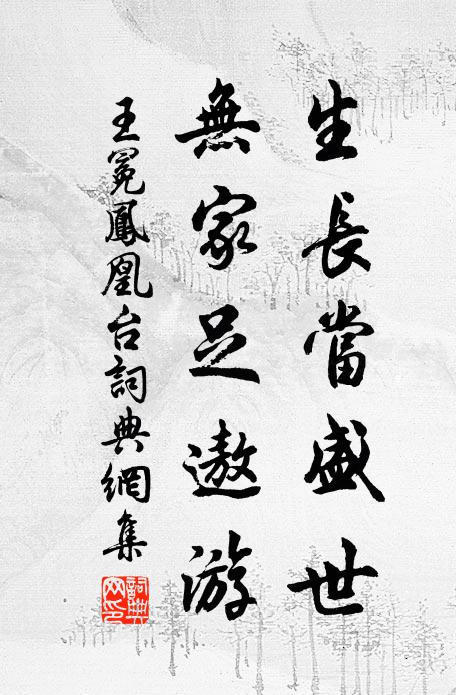 生長當盛世
無家足遨游
王冕鳳凰台詞典網集
詞典网印